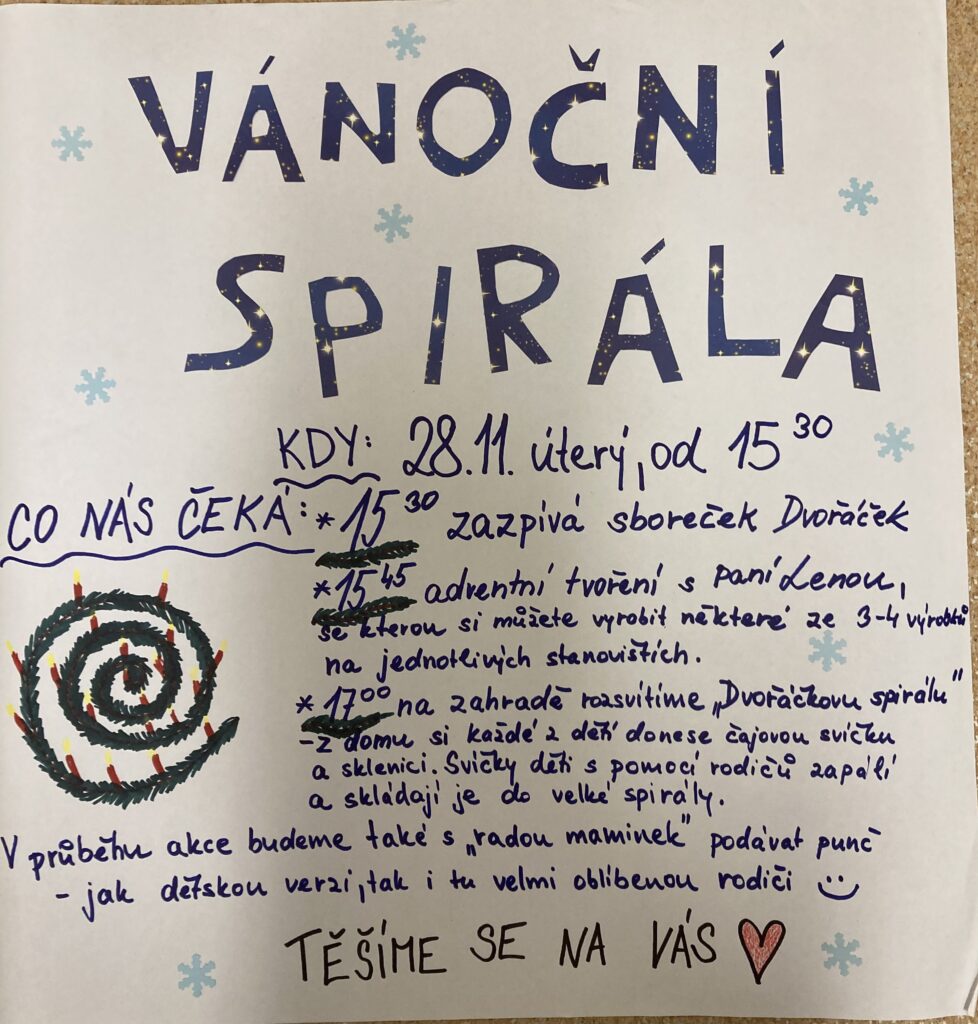 VÁNOČNÍ
SPIRÁLA
KDY: 28.11. úterý, od 15³⁰
CO NÁS ČEKÁ: * 15³⁰ zazpívá sboreček Dvořáček
* 15⁴⁵ adventní tvoření s paní Lenou,
se kterou si můžete vyrobit některé ze 3-4 výrobků
na jednotlivých stanovištích.
* 17⁰⁰ na zahradě rozsvítíme „Dvořáčkovu spirálu"
- z domu si každé z dětí donese čajovou svíčku
a sklenici. Svíčky děti s pomocí rodičů zapálí
a skládají je do velké spirály.
V průběhu akce budeme také s „radou maminek" podávat punč
- jak dětskou verzi, tak i tu velmi oblíbenou rodiči
TĚŠÍME SE NA VÁS